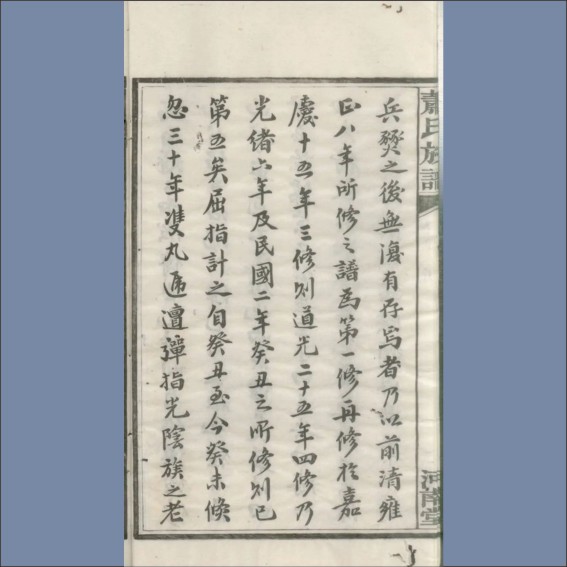 蕭氏族譜
兵燹之後無復有存焉者乃以前清雍
正八年所修之譜爲第一修再修於嘉
慶十五年三修則道光二十五年四修乃
光緒六年及民國二年癸丑之所修則已
第五矣屈指計之自癸丑至今癸未倏
忽三十年雙丸遞邅彈指光陰族之老
河南堂